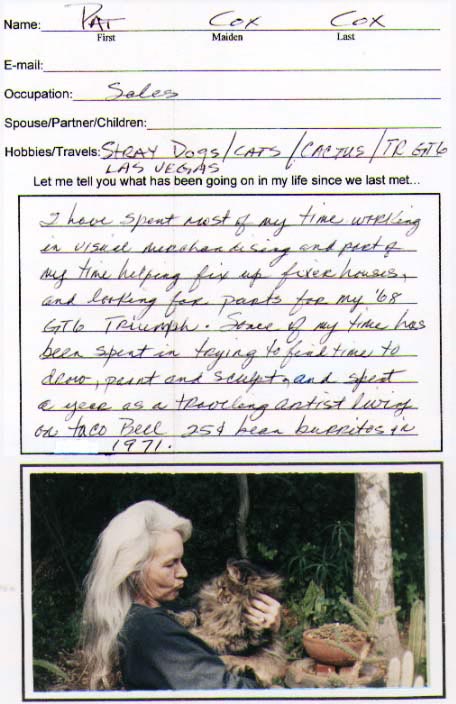 Name: PAT Cox Cox
First Maiden Last
E-mail:
Occupation: Sales
Spouse/Partner/Children:
Hobbies/Travels: STRAY DOGS/CATS/CACTUS/TR GT6
LAS VEGAS
Let me tell you what has been going on in my life since we last met...
I have spent most of my time working
in visual merchandising and part of
my time helping fix up fixer houses,
and looking for parts for my '68
GT6 Triumph. Some of my time has
been spent in trying to find time to
draw, paint and sculpt, and spent
a year as a traveling artist living
on Taco Bell 25¢ bean burritos in
1971.